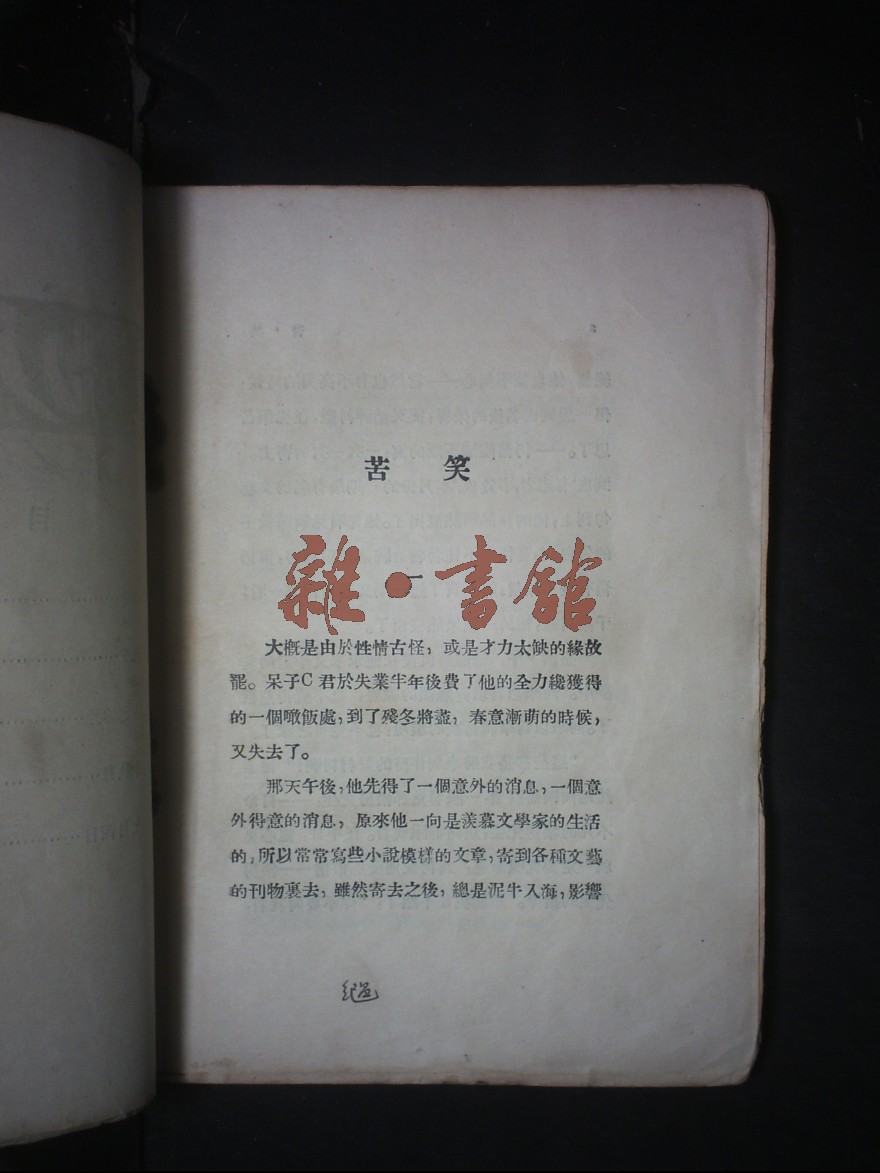 苦笑
一
雜·書館
大概是由於性情古怪，或是才力太缺的緣故
罷。呆子C君於失業半年後費了他的全力纔獲得
的一個噉飯處，到了殘冬將盡，春意漸萌的時候，
又失去了。
那天午後，他先得了一個意外的消息，一個意
外得意的消息，原來他一向是羨慕文學家的生活
的，所以常常寫些小說模樣的文章，寄到各種文藝
的刊物裏去，雖然寄去之後，總是泥牛入海，影響